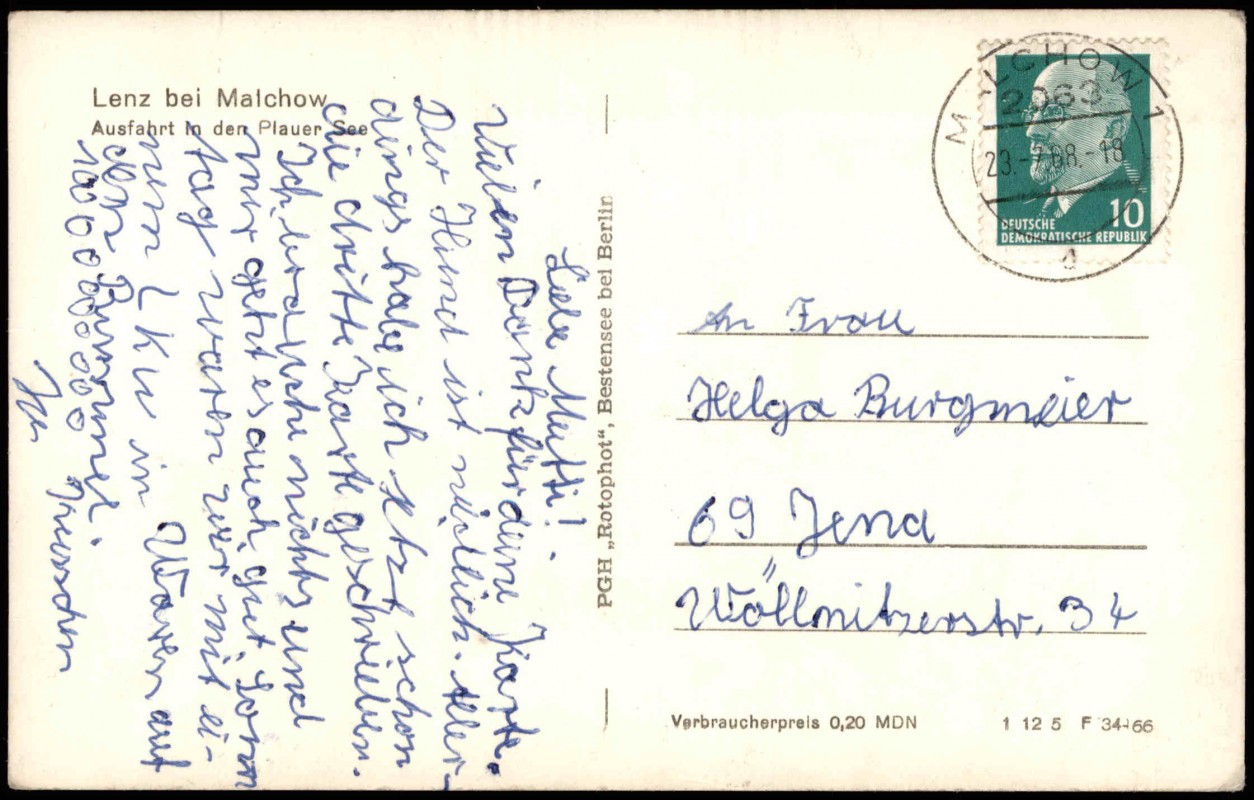 Lenz bei Malchow
Ausfahrt in den Plauer See
Liebe Mutti!
Vielen Dank für deine Karte.
Der Hund ist niedlich. Aller-
dings habe ich jetzt schon
die dritte Karte geschrieben.
Ich brauche nichts und
mir geht es auch gut. Sonn
tag waren wir mit ei-
nem Lkw in Waren auf
den Bummel.
1000 000000
PGH „Rotophot“, Bestensee bei Berlin
MALCHOW 1
2063
23.-7.68.-18
a
10
DEUTSCHE
DEMOKRATISCHE REPUBLIK
An Frau
Helga Burgmeier
69 Jena
Wöllnitzerstr. 34
Verbraucherpreis 0,20 MDN
1 12 5 F 34-66